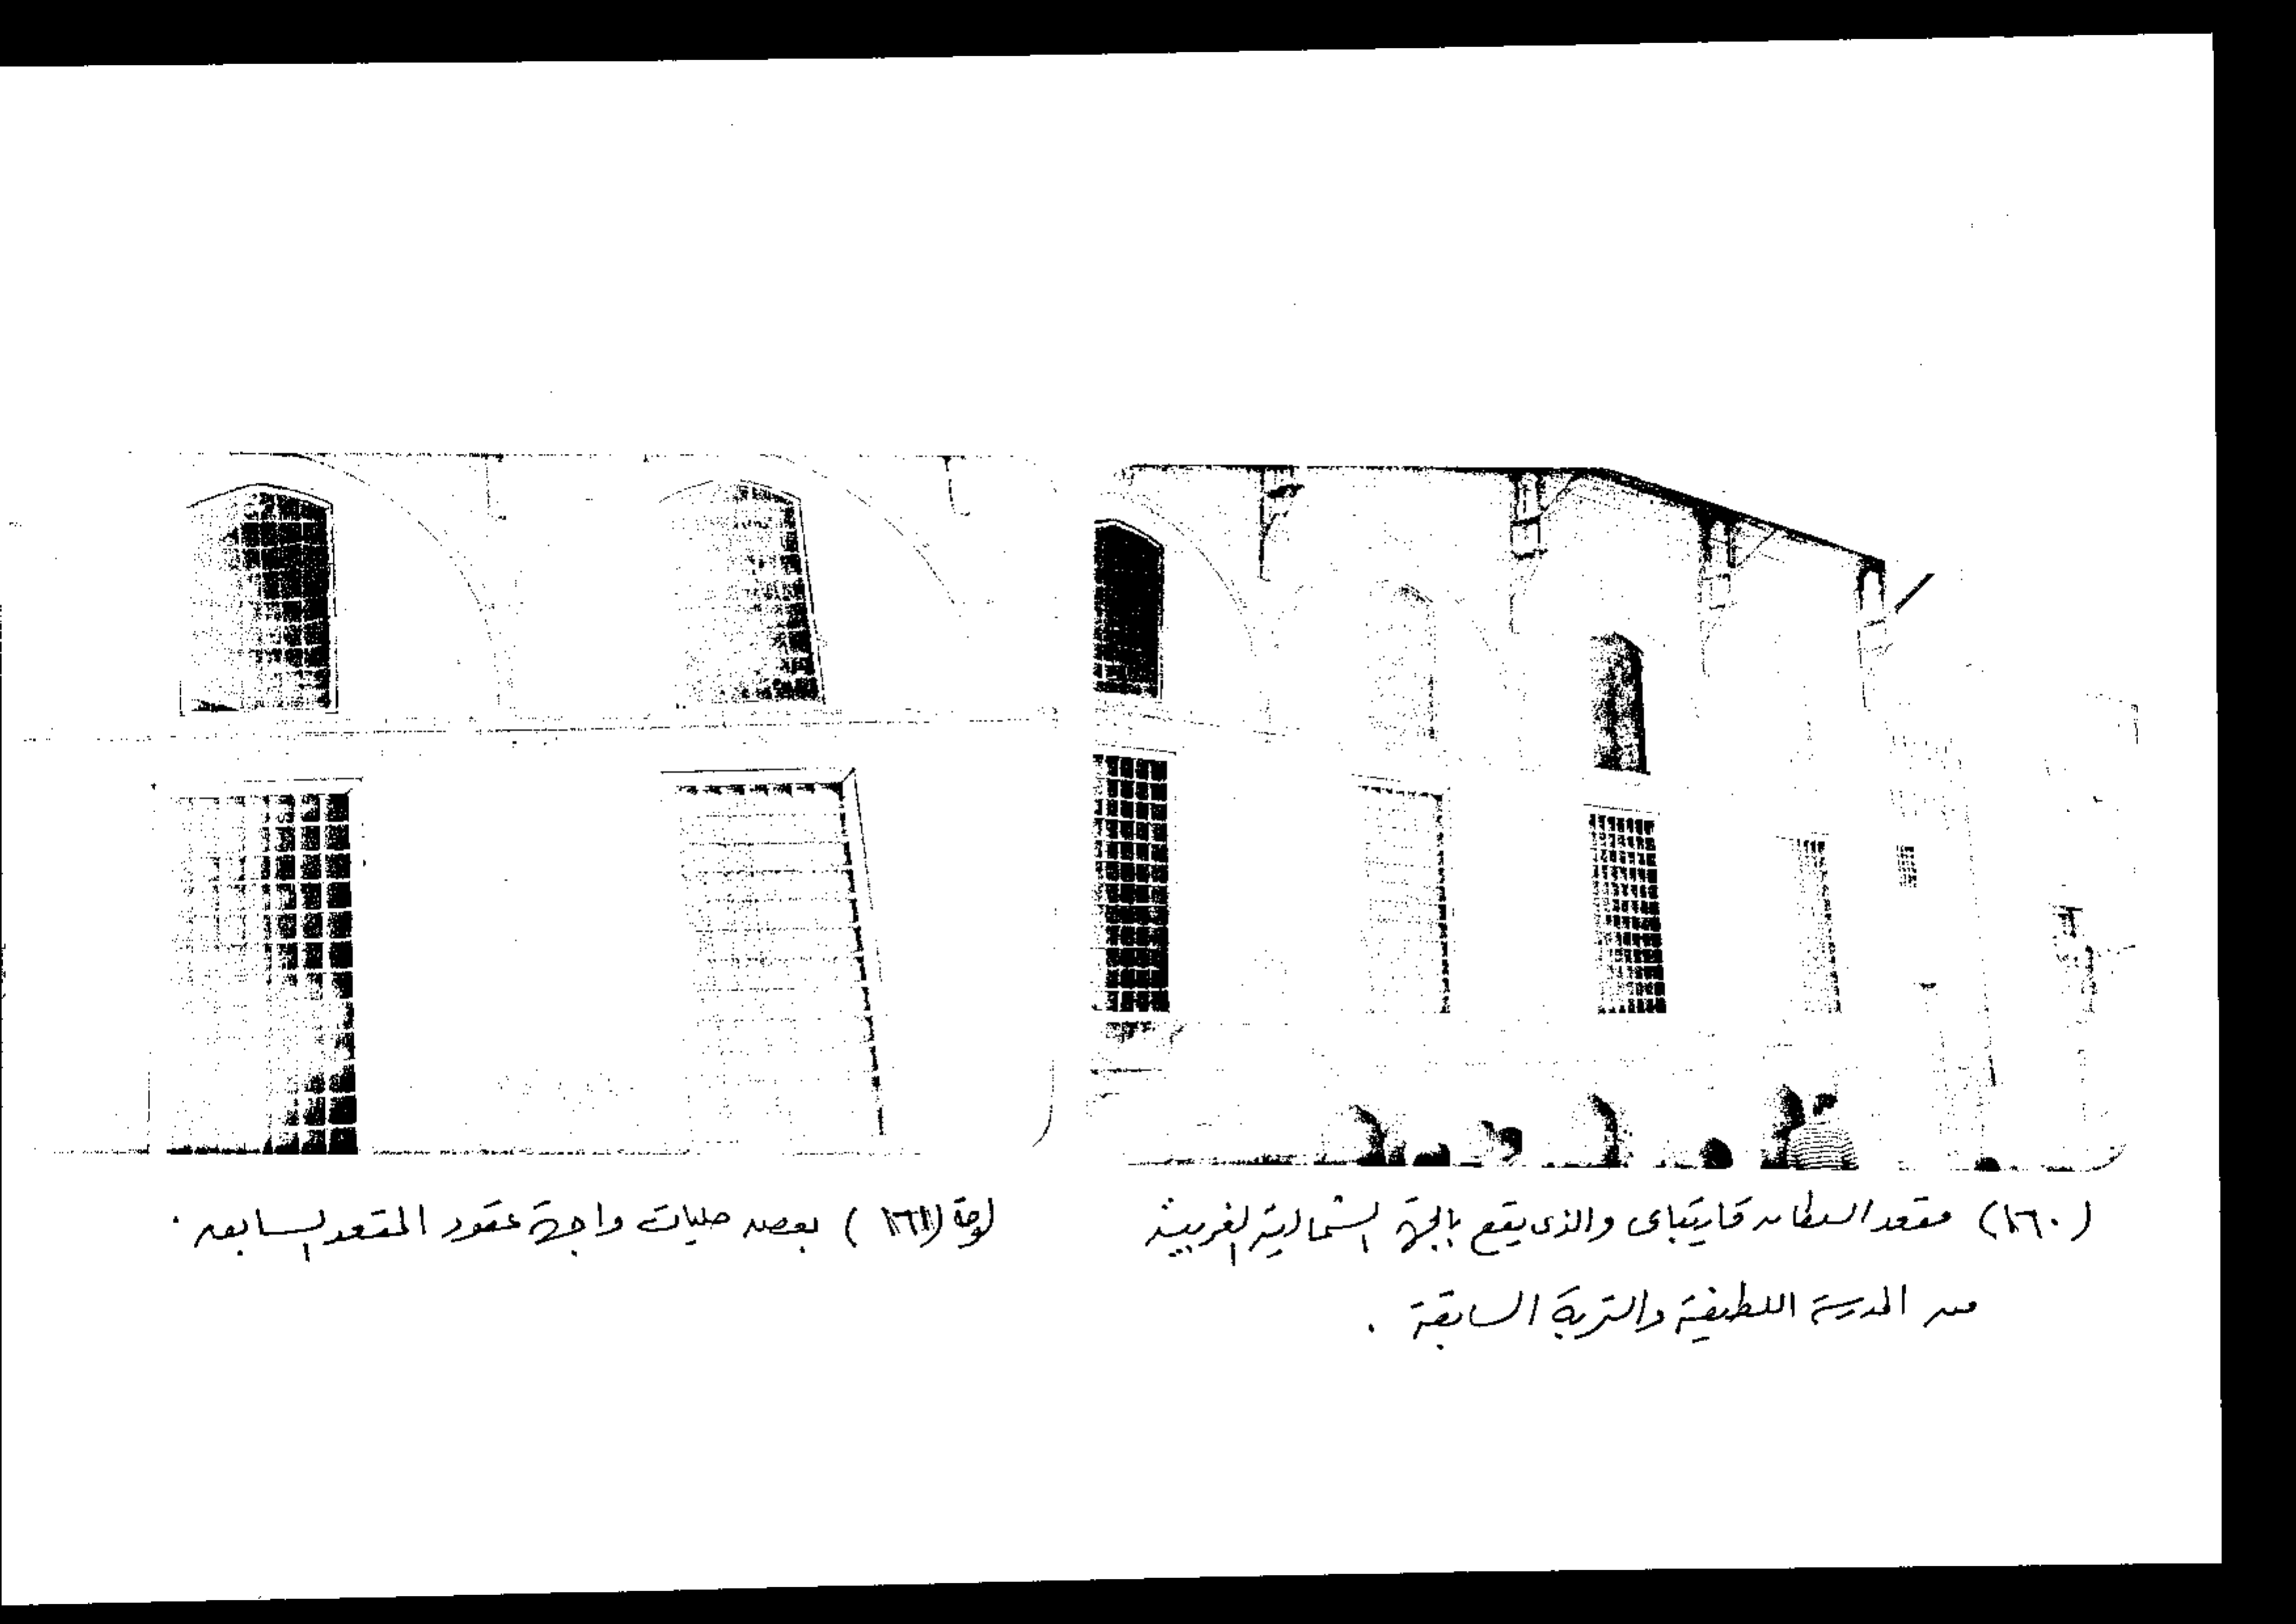 (١٦٠) مقعد السلطان قايتباى والذى يقع بالجهة الشمالية الغربية
من المدرسة اللطيفية والتربة السابقة .
لوحة (١٦١) بعض حليات واجهة عقود المقعد السابق .